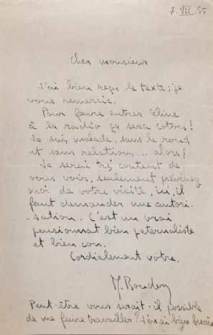 7. VII. 55
Cher monsieur
J'ai bien reçu le texte; je
vous remercie.
Pour faire entrer Céline
à la radio ça sera coton!
Je suis malade, dans le
et sans relations,... alors!
Je serai content de
vous voir, seulement prévenez
moi de votre visite, ici, il
faut demander une autori-
sation. C'est un vrai
pensionnat bien paternaliste
et bien con.
Cordialement votre.
Peut-être vous serait-il possible
de me faire travailler?